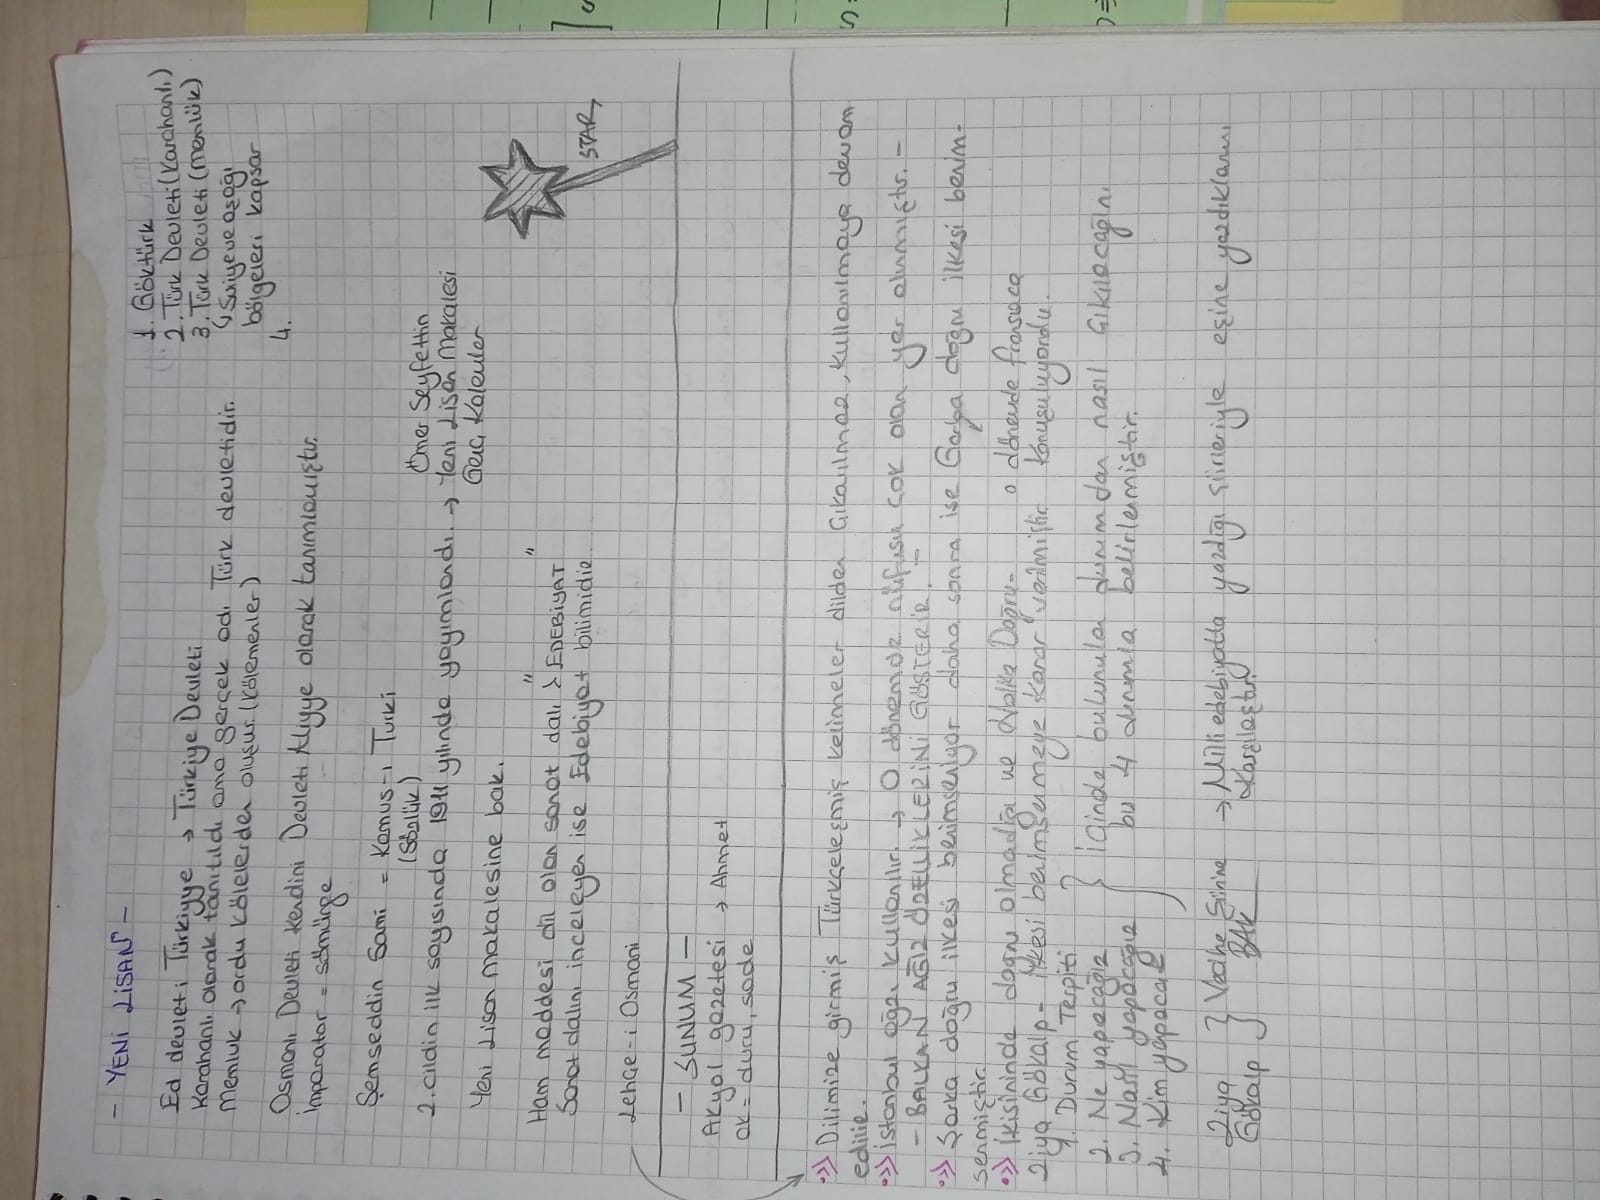 - YENİ LİSAN -
Ed devleti Türkiyye → Türkiye Devleti
Karahanlı olarak tanıtıldı ama gerçek adı Türk devletidir.
Memluk → ordu kölelerden oluşur. (Kölemenler)
1. Göktürk
2. Türk Devleti (Karahanlı)
3. Türk Devleti (memlük)
↳ Suriye ve aşağı
bölgeleri kapsar
4.
Osmanlı Devleti kendini Devleti Aliyye olarak tanımlamıştır.
İmparator = sömürge
Şemseddin Sami = Kamus-ı Turki
(Sözlük)
2. cildin ilk sayısında 1911 yılında yayımlandı. → Yeni Lisan Makalesi
Ömer Seyfettin
Genç Kalemler
Yeni Lisan makalesine bak.
Ham maddesi dil olan sanat dalı > EDEBİYAT
Sanat dalını inceleyen ise Edebiyat bilimidir.
Lehçe-i Osmani
STAR
- SUNUM -
Akyol gazetesi → Ahmet
ak = duru, sade
Dilimize girmiş Türkçeleşmiş kelimeler dilden çıkarılmaz, kullanılmaya devam
edilir.
İstanbul ağzı kullanılır. → O dönemde nüfusu çok olan yer olunmuştır. -
- BALKAN AĞIZ ÖZELLİKLERİNİ GÖSTERİR. -
Şarka doğru ilkesi benimseniyor daha sonra ise Garba doğru ilkesi benim-
senmiştir.
İkisininde doğru olmadığı ve Halka Doğru-
Ziya Gökalp - ilkesi benimsenmeye karar verilmiştir.
o dönemde fransızca
konuşuluyordu.
1. Durum Terpiti
2. Ne yapacağız
3. Nasıl yapacağız
4. Kim yapacak
içinde bulunula durumdan nasıl çıkılacağını
bu 4 durumla belirlenmiştir.
Ziya
Gökalp
Vadhe Şiirine
BAK
→ Milli edebiyatta yazdığı şiirleriyle eşine yazdıklarını
Karşılaştır.